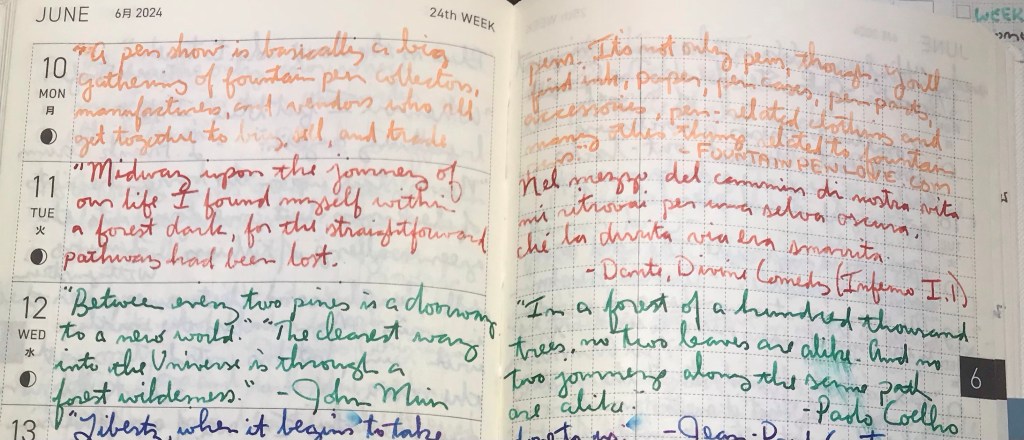 JUNE 6月 2024 24th WEEK
10 MON 月
"A pen show is basically a big
gathering of fountain pen collectors,
manufacturers, and vendors who all
get together to buy, sell, and trade
pens. It's not only pens, though. You'll
find ink, paper, pen cases, pen parts,
accessories, pen-related clothing and
many other things related to fountain
pens." - FOUNTAINPENLOVE.COM
11 TUE 火
"Midway upon the journey of
our life I found myself within
a forest dark, for the straightforward
pathway had been lost.
Nel mezzo del cammin di nostra vita
mi ritrovai per una selva oscura,
ché la diritta via era smarrita
- Dante, Divine Comedy (Inferno I.1)
12 WED 水
"Between every two pines is a doorway
to a new world." "The clearest way
into the Universe is through a
forest wilderness." - John Muir
"In a forest of a hundred thousand
trees, no two leaves are alike. And no
two journeys along the same path
are alike." - Paolo Coelho
13
"Liberty, when it begins to take
WEEK
6